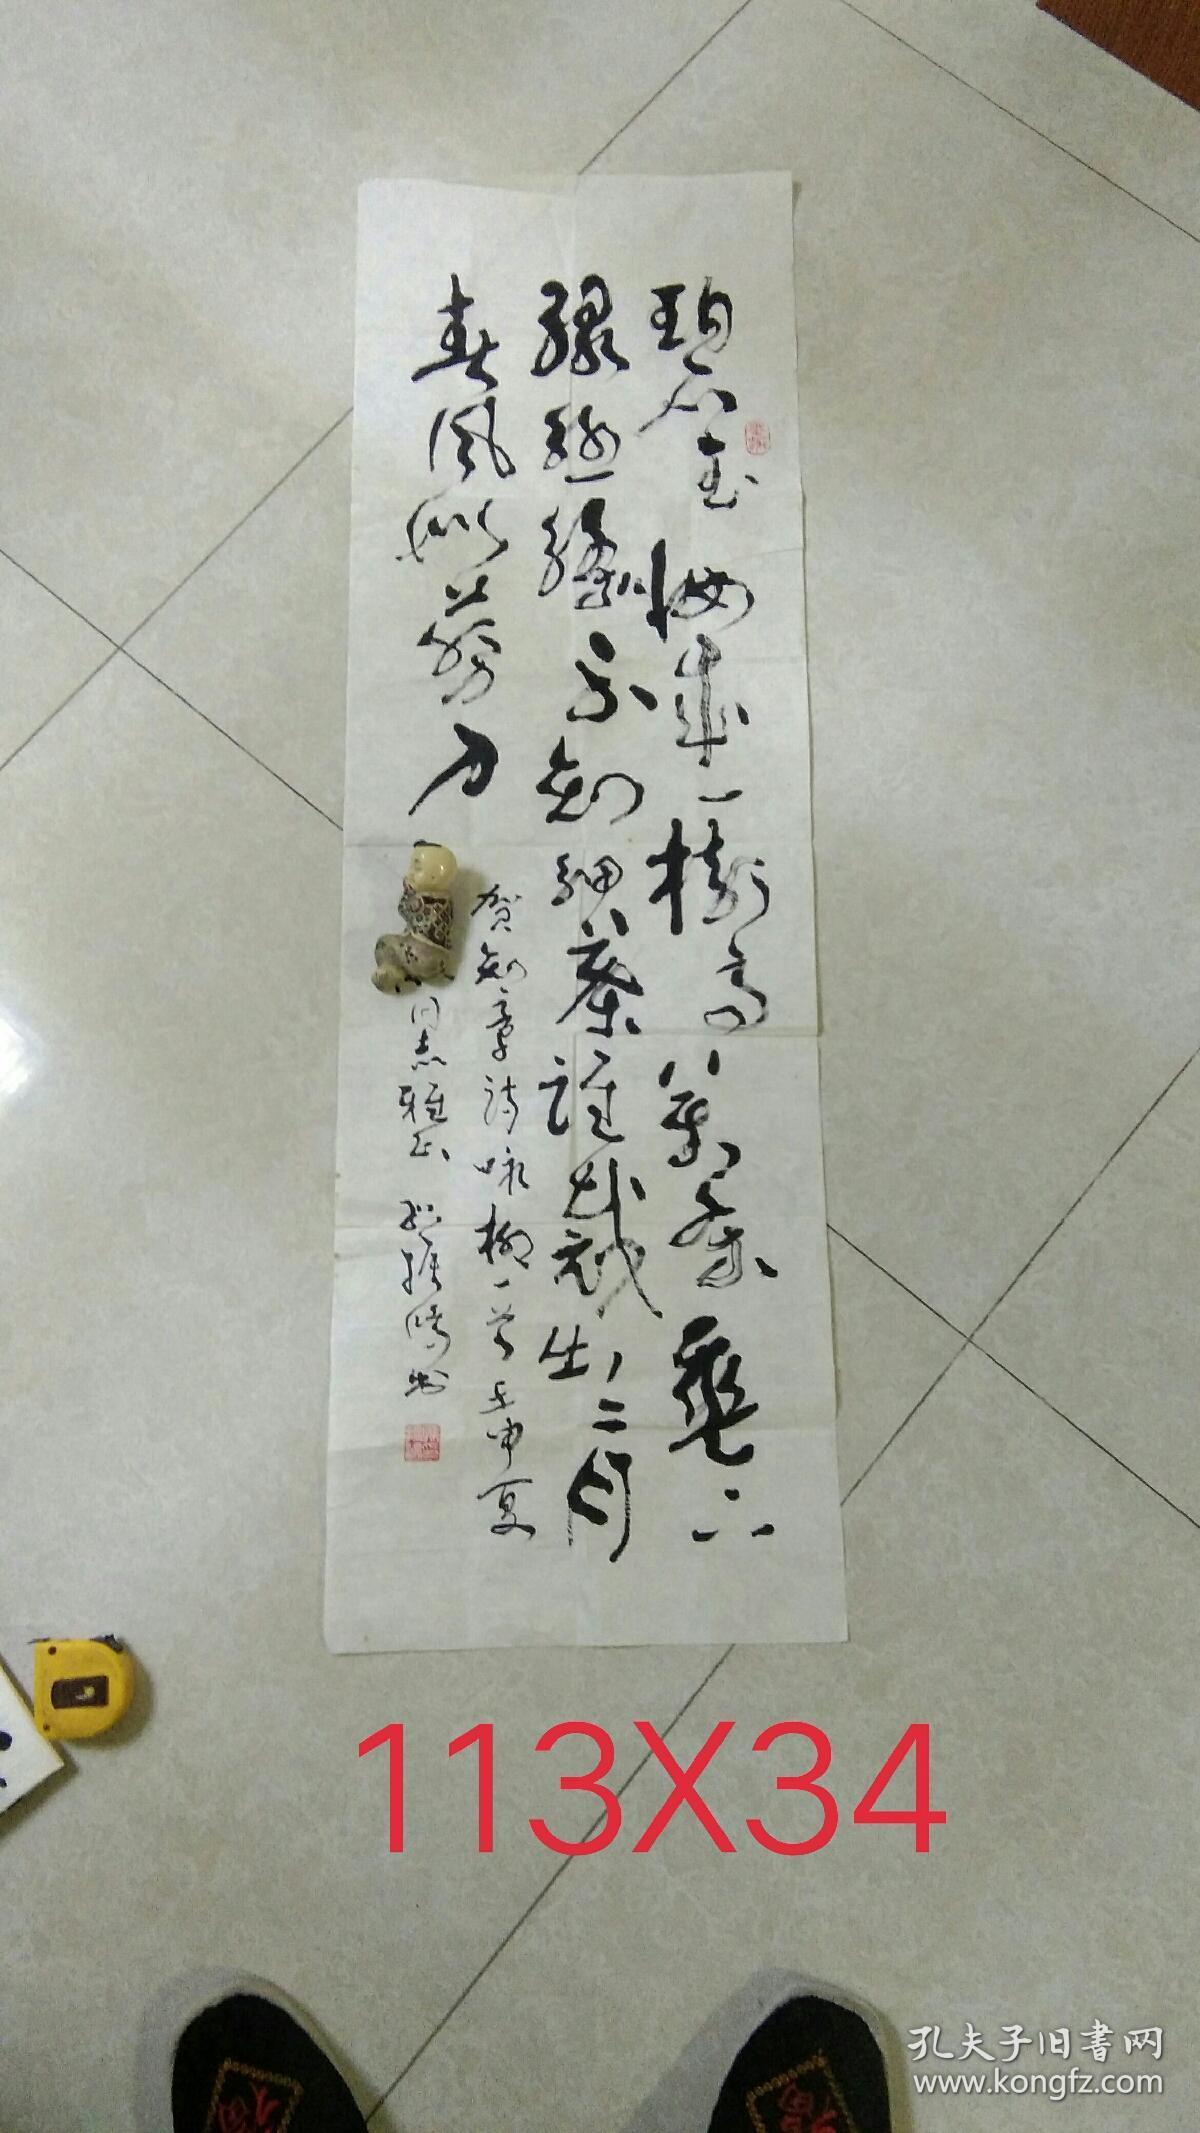 碧玉妝成一樹高萬條垂下
綠絲絛不知細葉誰裁出二月
春風似剪刀
賀知章詩咏柳一首壬申夏
同志雅正
113X34
孔夫子旧書网
www.kongfz.com